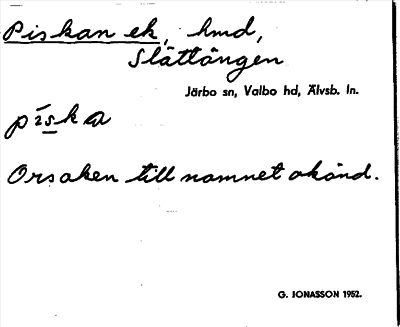 Piskan ek, hmd,
Slättängen
Järbo sn, Valbo hd, Älvsb. ln.
pı́ska
Orsaken till namnet okänd.
G. JONASSON 1952.